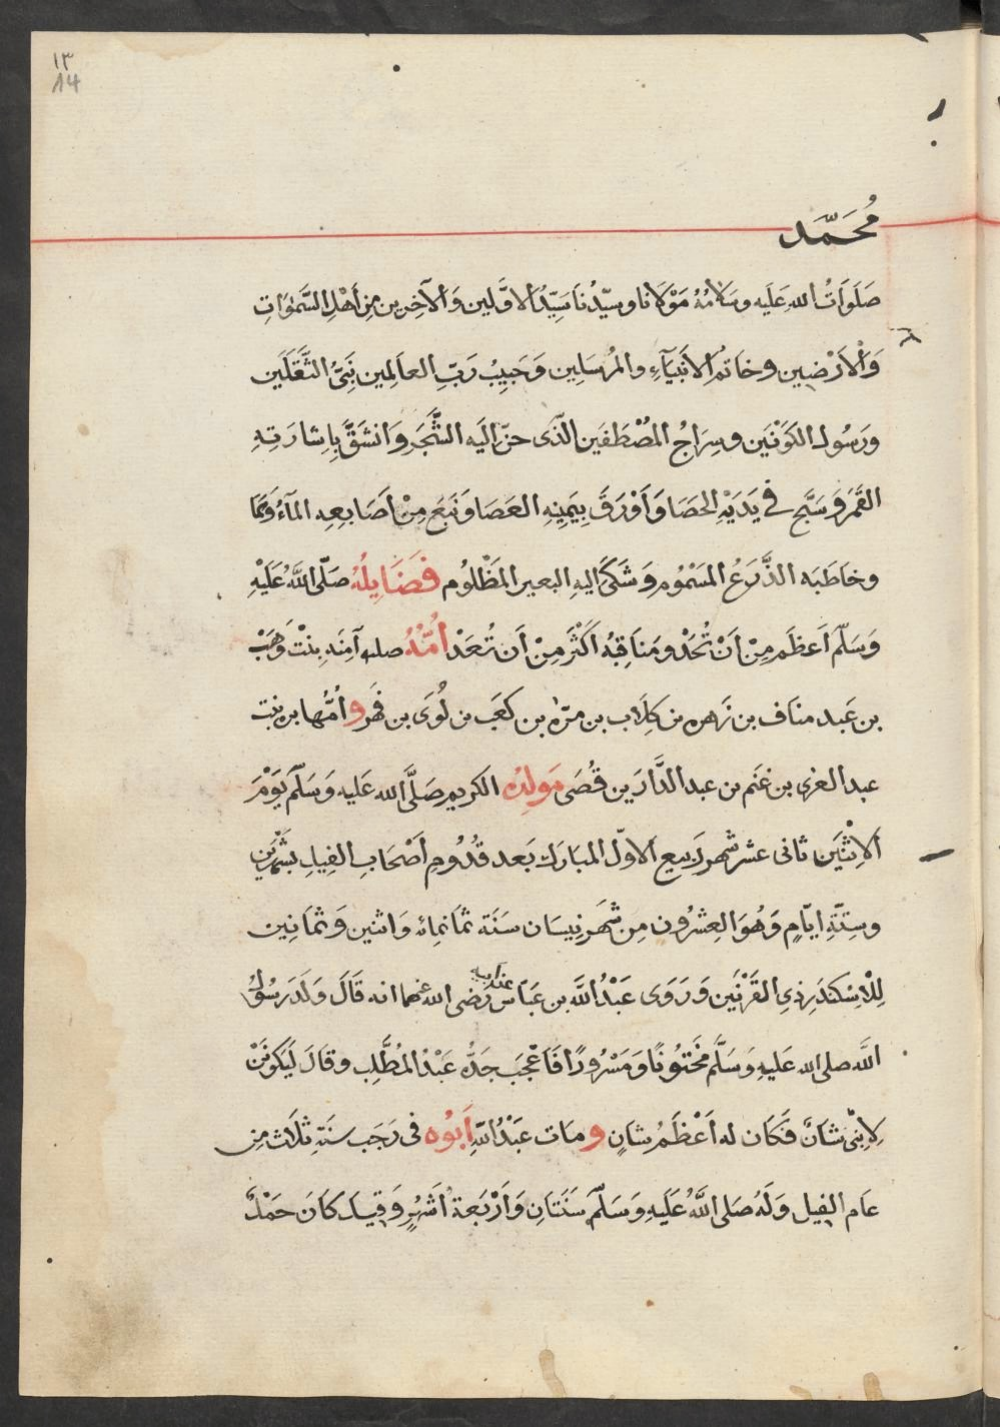 ١٣
14
مُحَمَّد
صَلَوَاتُ اللهِ عَلَيه وسَلَامُهُ مَوْلَانا وسيّدُنا سَيّدُ الاوّلين وَالآخِرين مِن أهْلِ السَّمٰوَاتِ
وَالْأرَضِين وخاتَمُ الأنبيَآءِ والمُرسَلِين وَحَبِيبُ رَبّ العالمِين نَبِىُّ الثَّقَلَين
ورَسُول الكَوْنَين وسِرَاجُ المُصْطَفين الّذى حنّ اليَه الشَّجَر وَانشَقَّ بإشارَتِهِ
القَمَر وَسَبَّح فى يَدَيْهِ الحَصَا وَأوْرَقَ بِيَمِينِهِ العَصَا وَنَبَع مِنْ أصَابِعِهِ المآءُ وَنَمَا
وخاطَبَه الذّرَاعُ المَسْمُوم وَشَكَىٰ اليهِ البعير المَظْلُوم فَضَايِلُهُ صَلّى اللَّهُ عَلَيْهِ
وَسَلّم اَعظَم مِنْ اَنْ تُحَدْ ومَنَاقِبُه اَكْثَر مِنْ اَن تُعَدْ اُمّهُ صلعم آمِنَه بِنْتْ وَهَبْ
بن عَبد مناف بن زَهره بن كِلَاب بن مرّة بن كَعَب بن لُوَى بن فَهر وأُمُّها بره بنت
عبد العزى بن غنَم بن عبد الدَّار بن قُصَى مَولِدُه الكريم صَلَّى الله عَليه وَسَلّم يَوْمَ
الاِثْنَين ثانى عشر شهر رَبيع الاوّل المبَارك بَعد قُدُومِ أصْحَابِ الفِيلِ بشَهْرَينِ
وسِتّةِ ايّامٍ وَهُوَ العِشرُون مِن شَهر نِيسَان سَنَة ثمَانمائه وَاثنين وَثمَانِين
لِلْاِسْكَندَر ذِى القَرْنَين وَرَوَى عَبْدُ اللَّه بن عَبّاس رَضى الله عنهما انه قَالَ وَلَد رَسُولُ
اللَّه صلى الله عَليهِ وَسَلَّم مَختُونًا وَمَسْرُورًا فَاعْجَبَ جَدَّه عَبْدُ المُطَّلِب وقالَ لَيَكونَنّ
لاِبْنى شانٌ فكَان له اَعْظَمُ شانٍ ومَات عَبْدُ اللهِ اَبُوْه فى رَجَب سَنَةِ ثلَاثَ مِن
عَام الفِيل وَلَهُ صَلى اللَّهُ عَلَيهِ وَسَلّمَ سَنَتَانِ وَأرْبَعة أشْهُرٍ وَقيل كَانَ حَمْلً